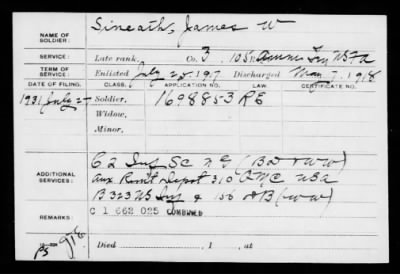 NAME OF SOLDIER: Sineath, James W
SERVICE: Late rank. Co. 3, 105 Ammn Trn USA
TERM OF SERVICE: Enlisted July 25, 1917 Discharged May 7, 1918
DATE OF FILING. CLASS. APPLICATION NO. LAW. CERTIFICATE NO.
1931 July 27 Soldier, 1698853 RE
Widow,
Minor,
ADDITIONAL SERVICES: G 2 Inf SC N G (BD & WW)
Aux Rmt Depot 310 QMC USA
B 323 US Inf & 156 DB (WW)
REMARKS: C 1 662 025 COMBINED
Died , 1 , at